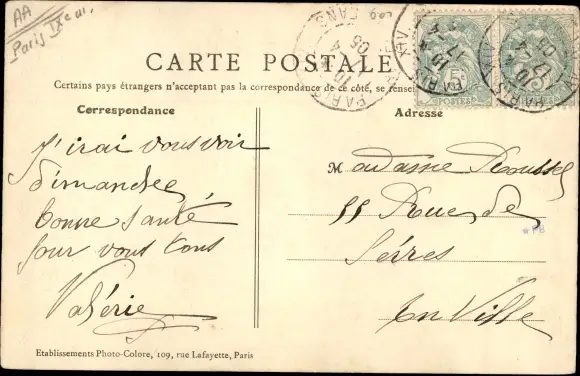 AA
Paris IXe ar.
CARTE POSTALE
Certains pays étrangers n'acceptent pas la correspondance de ce côté, se rensei
Correspondance
Adresse
J'irai vous voir
dimanche
bonne santé
pour vous tous
Valérie
Madame Roussel
55 Rue de
Sèvres
En Ville
5c
POSTES
*PB
Etablissements Photo-Colore, 109, rue Lafayette, Paris